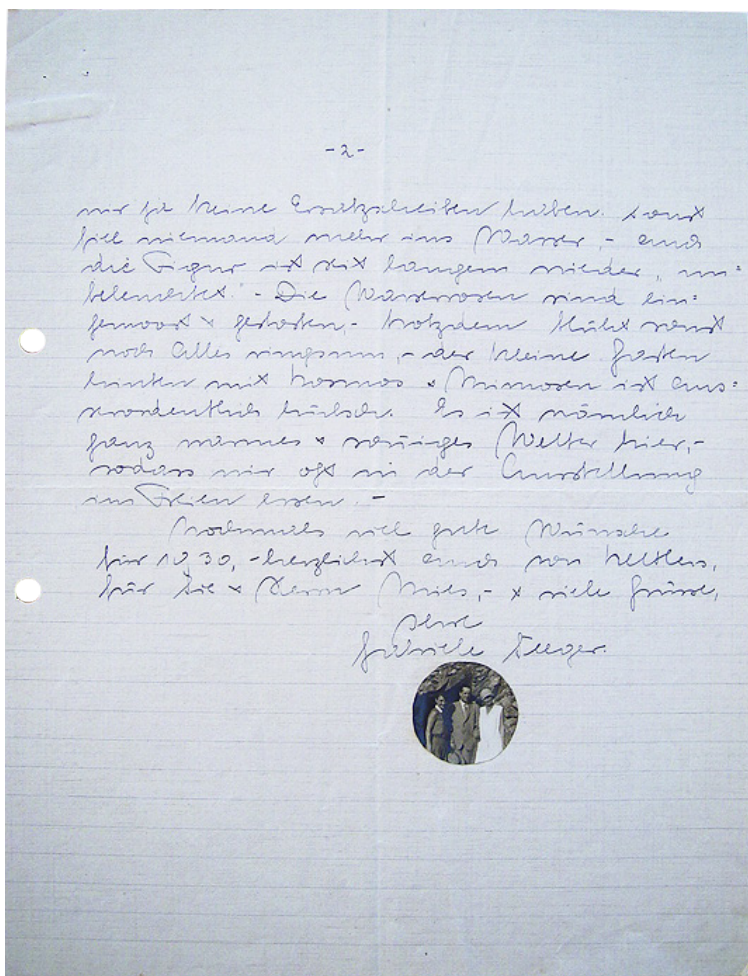 -2-
wir ja keine Ersatzscheiben haben. Sonst
fiel niemand mehr ins Wasser, - auch
die Figur ist seit langem wieder, un=
beleuchtet. - Die Wasserrosen sind ein=
gemoost x gestorben, - trotzdem blüht sonst
noch Alles ringsum, - der kleine Garten
hinten mit Kosmos x Mimosen ist aus=
serordentlich hübsch. Es ist nämlich
ganz warmes x sonniges Wetter hier, -
sodass wir oft in der Ausstellung
im Freien essen. -
Nochmals viel gute Wünsche
für 1930, - herzlichst auch von Kettlers,
für Sie x Herrn Mies, - x viele Grüsse,
Ihre
Gabriele Seeger.